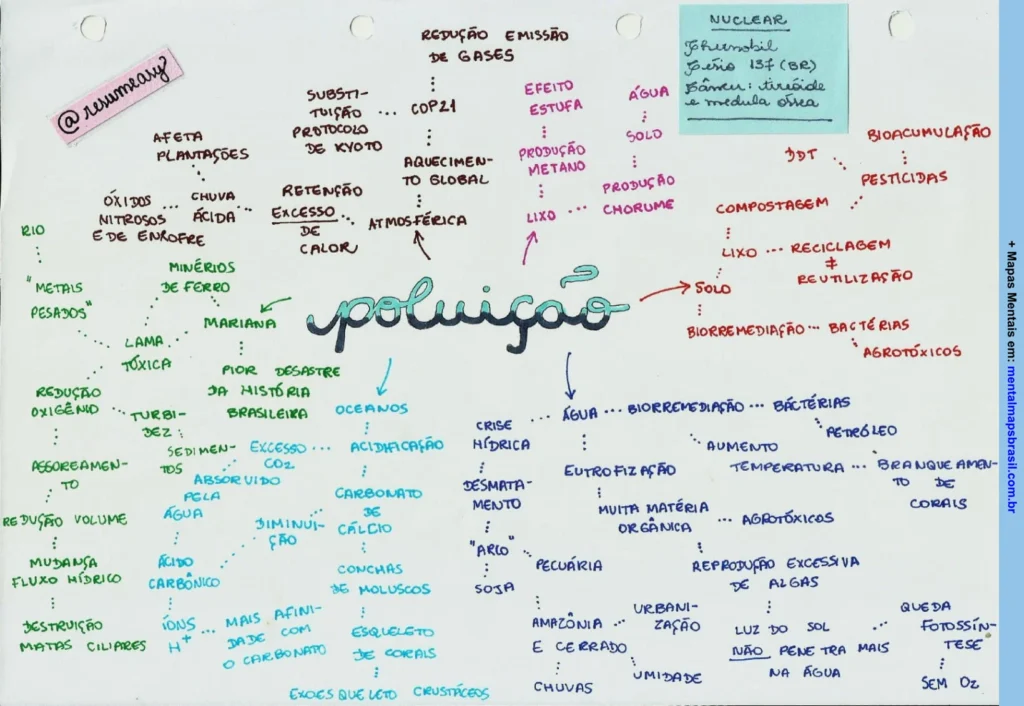 @resumeasy
NUCLEAR
Chernobil
Césio 137 (BR)
Câncer: tireóide
e medula óssea
poluição
ATMOSFÉRICA
AQUECIMEN-
TO GLOBAL
COP21
REDUÇÃO EMISSÃO
DE GASES
SUBSTI-
TUIÇÃO
PROTOCOLO
DE KYOTO
RETENÇÃO
EXCESSO
DE
CALOR
CHUVA
ÁCIDA
AFETA
PLANTAÇÕES
ÓXIDOS
NITROSOS
E DE ENXOFRE
LIXO
PRODUÇÃO
METANO
EFEITO
ESTUFA
PRODUÇÃO
CHORUME
SOLO
ÁGUA
SOLO
LIXO
COMPOSTAGEM
RECICLAGEM
≠
REUTILIZAÇÃO
DDT
PESTICIDAS
BIOACUMULAÇÃO
BIORREMEDIAÇÃO
BACTÉRIAS
AGROTÓXICOS
MARIANA
MINÉRIOS
DE FERRO
LAMA
TÓXICA
"METAIS
PESADOS"
RIO
PIOR DESASTRE
DA HISTÓRIA
BRASILEIRA
REDUÇÃO
OXIGÊNIO
TURBI-
DEZ
SEDIMEN-
TOS
ASSOREAMEN-
TO
REDUÇÃO VOLUME
MUDANÇA
FLUXO HÍDRICO
DESTRUIÇÃO
MATAS CILIARES
OCEANOS
ACIDIFICAÇÃO
EXCESSO
CO2
ABSORVIDO
PELA
ÁGUA
ÁCIDO
CARBÔNICO
DIMINUI-
ÇÃO
ÍONS
H+
MAIS AFINI-
DADE COM
O CARBONATO
CARBONATO
DE
CÁLCIO
CONCHAS
DE MOLUSCOS
ESQUELETO
DE CORAIS
EXOESQUELETO CRUSTÁCEOS
ÁGUA
BIORREMEDIAÇÃO
BACTÉRIAS
PETRÓLEO
AUMENTO
TEMPERATURA
BRANQUEAMEN-
TO DE
CORAIS
CRISE
HÍDRICA
DESMATA-
MENTO
"ARCO"
SOJA
PECUÁRIA
AMAZÔNIA
E CERRADO
CHUVAS
URBANI-
ZAÇÃO
UMIDADE
EUTROFIZAÇÃO
MUITA MATÉRIA
ORGÂNICA
AGROTÓXICOS
REPRODUÇÃO EXCESSIVA
DE ALGAS
LUZ DO SOL
NÃO PENETRA MAIS
NA ÁGUA
QUEDA
FOTOSSÍN-
TESE
SEM O2
+ Mapas Mentais em: mentalmapsbrasil.com.br